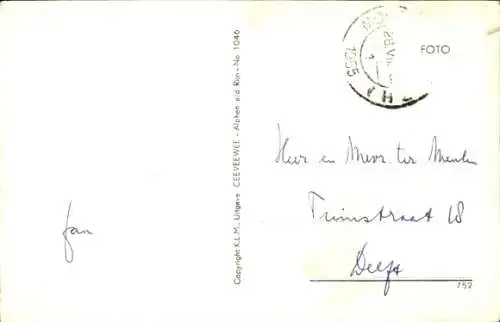 Jan
Copyright K.L.M., Uitgave CEEVEEWEE - Alphen a/d Rijn - No 1046
1955
FOTO
Heer en Mevr. ter Meulen
Tuinstraat 18
Delft
752